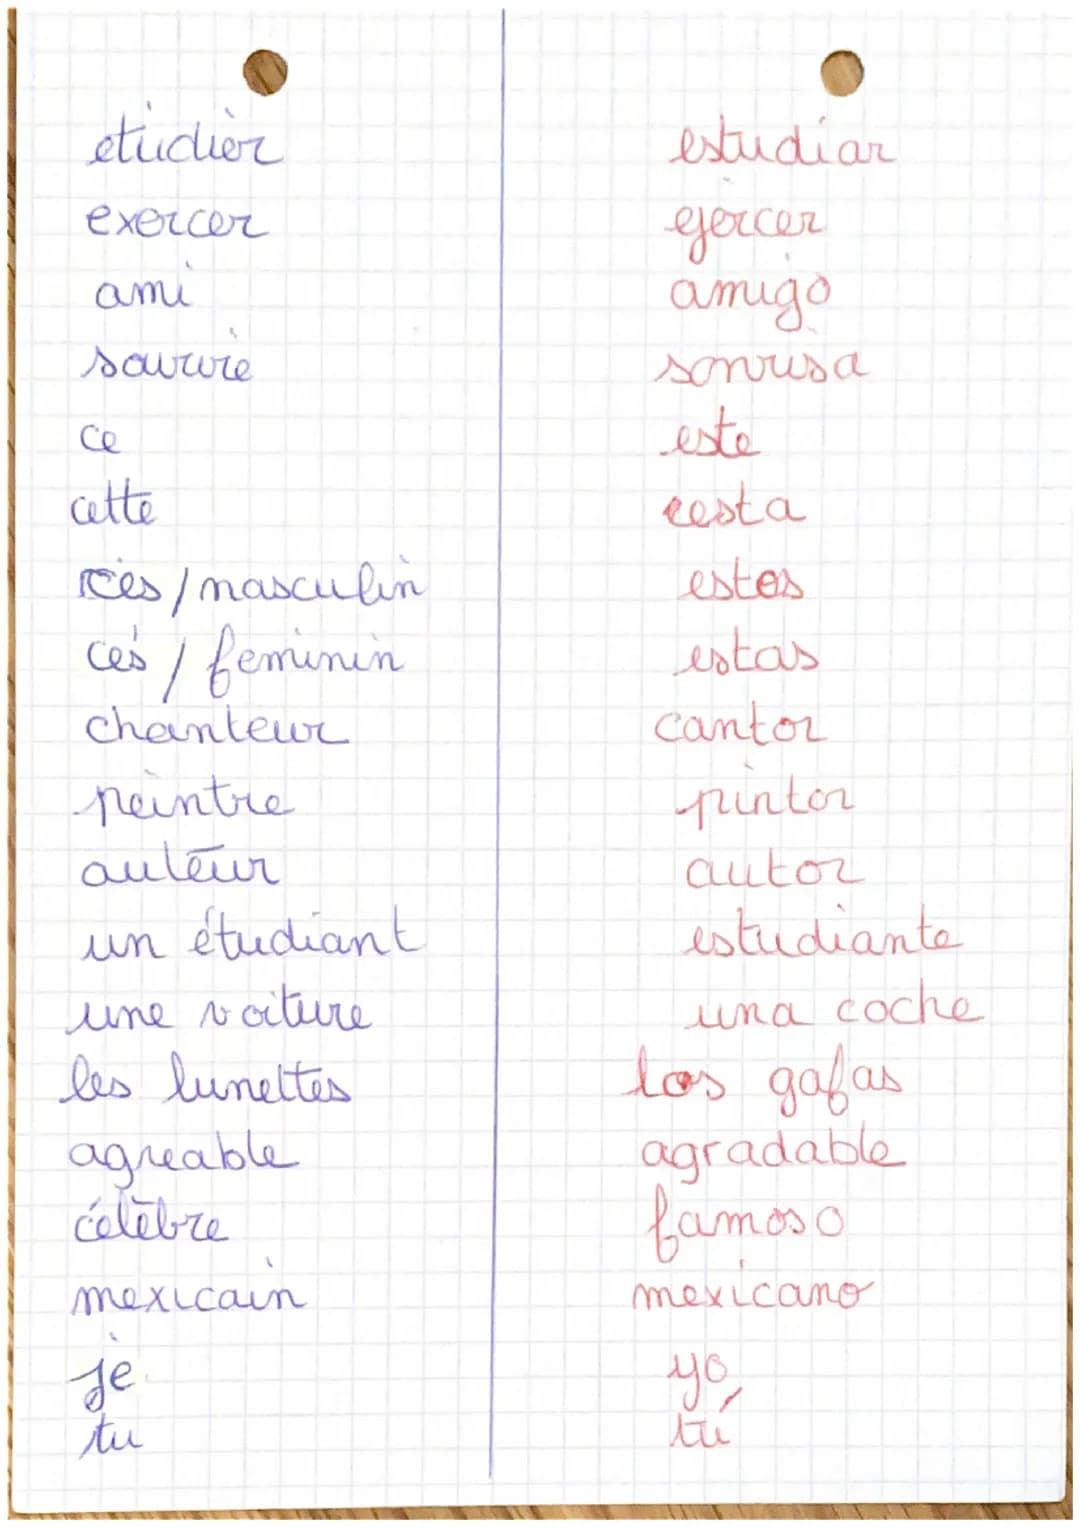 étudier estudiar
exercer ejercer
ami amigo
sourire sonrisa
ce este
cette esta
ces / masculin estos
ces / feminin estas
chanteur cantor
peintre pintor
auteur autor
un étudiant estudiante
une voiture una coche
les lunettes las gafas
agreable agradable
célèbre famoso
mexicain mexicano
je yo
tu tú